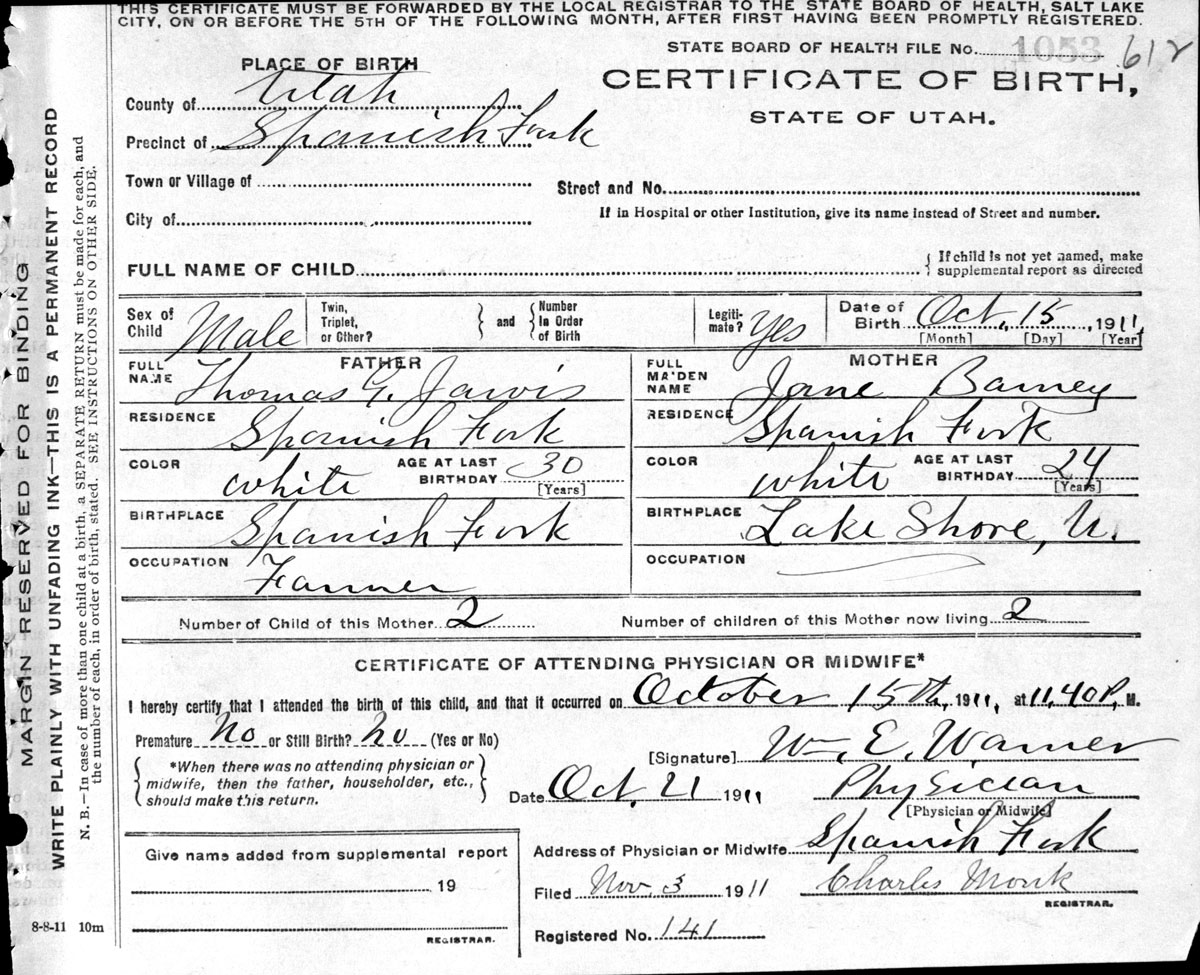 THIS CERTIFICATE MUST BE FORWARDED BY THE LOCAL REGISTRAR TO THE STATE BOARD OF HEALTH, SALT LAKE
CITY, ON OR BEFORE THE 5TH OF THE FOLLOWING MONTH, AFTER FIRST HAVING BEEN PROMPTLY REGISTERED.
STATE BOARD OF HEALTH FILE No. 1053 612
PLACE OF BIRTH
CERTIFICATE OF BIRTH,
STATE OF UTAH.
County of Utah
Precinct of Spanish Fork
Town or Village of
Street and No.
City of
If in Hospital or other Institution, give its name instead of Street and number.
FULL NAME OF CHILD
{ If child is not yet named, make
supplemental report as directed
Sex of Child Male
Twin, Triplet, or Other?
} and {
Number in Order of Birth
Legitimate? Yes
Date of Birth Oct. 15, 1911,
[Month] [Day] [Year]
FATHER
FULL NAME Thomas G. Jarvis
RESIDENCE Spanish Fork
COLOR white AGE AT LAST BIRTHDAY 30
[Years]
BIRTHPLACE Spanish Fork
OCCUPATION Farmer
MOTHER
FULL MAIDEN NAME Jane Barney
RESIDENCE Spanish Fork
COLOR white AGE AT LAST BIRTHDAY 24
[Years]
BIRTHPLACE Lake Shore, U.
OCCUPATION
Number of Child of this Mother 2 Number of children of this Mother now living 2
CERTIFICATE OF ATTENDING PHYSICIAN OR MIDWIFE*
I hereby certify that I attended the birth of this child, and that it occurred on October 15th, 1911, at 11,40 P, M.
Premature No or Still Birth? no (Yes or No)
[Signature] Wm. E. Warner
{ *When there was no attending physician or
midwife, then the father, householder, etc.,
should make this return. }
Date Oct. 21 1911
Physician
[Physician or Midwife]
Address of Physician or Midwife Spanish Fork
Filed Nov 3 1911 Charles Monk
REGISTRAR.
Registered No. 141
Give name added from supplemental report
19
REGISTRAR.
8-8-11 10m
MARGIN RESERVED FOR BINDING
WRITE PLAINLY WITH UNFADING INK—THIS IS A PERMANENT RECORD
N. B.—In case of more than one child at a birth, a SEPARATE RETURN must be made for each, and
the number of each, in order of birth, stated. SEE INSTRUCTIONS ON OTHER SIDE.